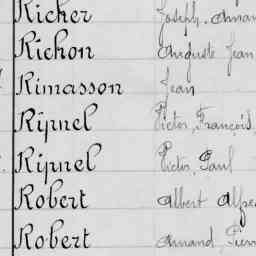 Richer Joseph, Aman
Richon Auguste Jean
Rimasson Jean
Ripnel Victor, François,
Ripnel Victor, Paul
Robert Albert Alfre
Robert Amand, Pierr